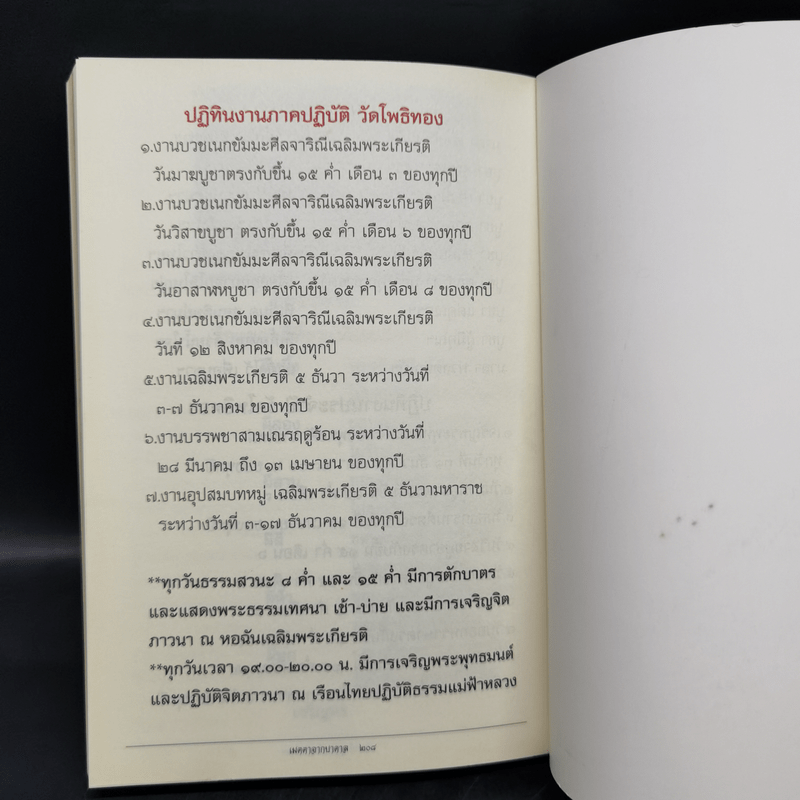 ปฏิทินงานภาคปฏิบัติ วัดโพธิทอง
๑.งานบวชเนกขัมมะศีลจาริณีเฉลิมพระเกียรติ
วันมาฆบูชาตรงกับขึ้น ๑๕ ค่ำ เดือน ๓ ของทุกปี
๒.งานบวชเนกขัมมะศีลจาริณีเฉลิมพระเกียรติ
วันวิสาขบูชา ตรงกับขึ้น ๑๕ ค่ำ เดือน ๖ ของทุกปี
๓.งานบวชเนกขัมมะศีลจาริณีเฉลิมพระเกียรติ
วันอาสาฬหบูชา ตรงกับขึ้น ๑๕ ค่ำ เดือน ๘ ของทุกปี
๔.งานบวชเนกขัมมะศีลจาริณีเฉลิมพระเกียรติ
วันที่ ๑๒ สิงหาคม ของทุกปี
๕.งานเฉลิมพระเกียรติ ๕ ธันวา ระหว่างวันที่
๓-๗ ธันวาคม ของทุกปี
๖.งานบรรพชาสามเณรฤดูร้อน ระหว่างวันที่
๒๘ มีนาคม ถึง ๑๓ เมษายน ของทุกปี
๗.งานอุปสมบทหมู่ เฉลิมพระเกียรติ ๕ ธันวามหาราช
ระหว่างวันที่ ๓-๑๗ ธันวาคม ของทุกปี
**ทุกวันธรรมสวนะ ๘ ค่ำ และ ๑๕ ค่ำ มีการตักบาตร
และแสดงพระธรรมเทศนา เช้า-บ่าย และมีการเจริญจิต
ภาวนา ณ หอฉันเฉลิมพระเกียรติ
**ทุกวันเวลา ๑๙.๐๐-๒๐.๐๐ น. มีการเจริญพระพุทธมนต์
และปฏิบัติจิตภาวนา ณ เรือนไทยปฏิบัติธรรมแม่ฟ้าหลวง
๒๐๘